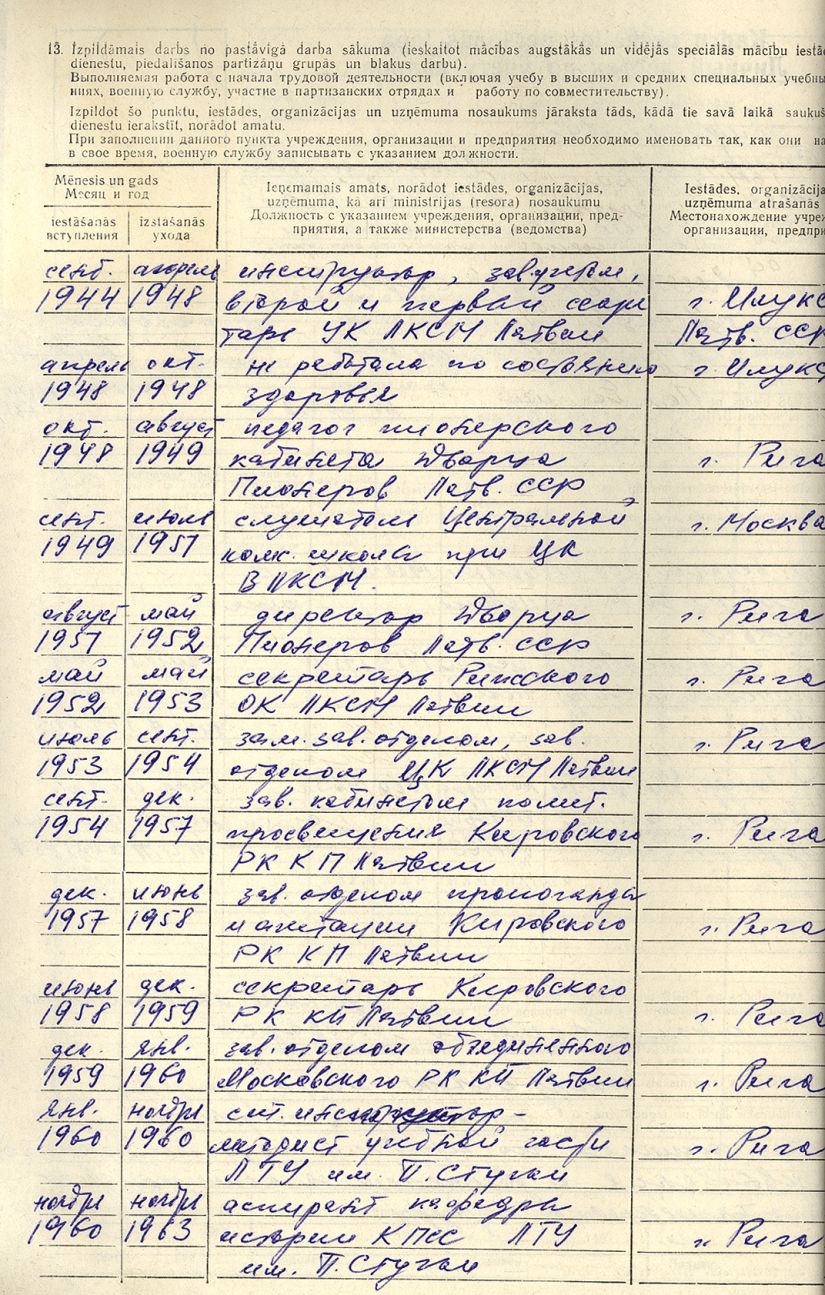 13. Izpildāmais darbs no pastāvīgā darba sākuma (ieskaitot mācības augstākās un vidējās speciālās mācību iestā
dienestu, piedalīšanos partizāņu grupās un blakus darbu).
Выполняемая работа с начала трудовой деятельности (включая учебу в высших и средних специальных учебны
ниях, военную службу, участие в партизанских отрядах и работу по совместительству).
Izpildot šo punktu, iestādes, organizācijas un uzņēmuma nosaukums jāraksta tāds, kādā tie savā laikā saukuš
dienestu ierakstīt, norādot amatu.
При заполнении данного пункта учреждения, организации и предприятия необходимо именовать так, как они на
в свое время, военную службу записывать с указанием должности.
Mēnesis un gads
Месяц и год
iestāšanās
вступления
izstāšanās
ухода
Ieņemamais amats, norādot iestādes, organizācijas,
uzņēmuma, kā arī ministrijas (resora) nosaukumu
Должность с указанием учреждения, организации, пред-
приятия, а также министерства (ведомства)
Iestādes, organizācija
uzņēmuma atrašanās
Местонахождение учре
организации, предпри
сент. апрель инструктор, зав.учетом,
1944 1948 второй и первый секре г. Илукс
тарь УК ЛКСМ Латвии Латв. ССР
апрель окт. не работала по состоянию г. Илукс
1948 1948 здоровья
окт. август педагог пионерского
1948 1949 кабинета Дворца г. Рига
Пионеров Латв. ССР
сент. июль слушатель Центральной г. Москва
1949 1951 комс. школы при ЦК
ВЛКСМ.
август май директор Дворца г. Рига
1951 1952 Пионеров Латв. ССР
май май секретарь Рижского г. Рига
1952 1953 ОК ЛКСМ Латвии
июль сент. зам. зав. отделом, зав. г. Рига
1953 1954 отделом ЦК ЛКСМ Латвии
сент. дек. зав. кабинетом полит.
1954 1957 просвещения Кировского г. Рига
РК КП Латвии
дек. июнь зав. отделом пропоганды
1957 1958 и агитации Кировского г. Рига
РК КП Латвии
июнь дек. секретарь Кировского
1958 1959 РК КП Латвии г. Рига
дек. янв. зав. отделом объединенного
1959 1960 Московского РК КП Латвии г. Рига
янв. ноябрь ст. инструктор-
1960 1960 методист учебной части г. Рига
ЛГУ им. П. Стучки
ноябрь ноябрь аспирант кафедры
1960 1963 истории КПСС ЛГУ г. Рига
им. П. Стучки